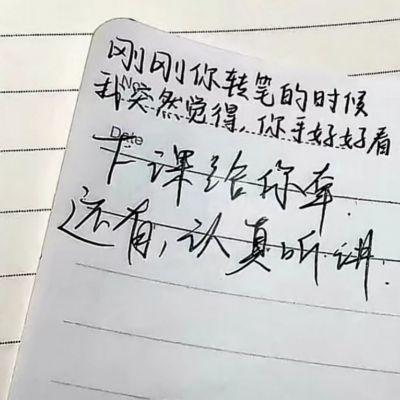 刚刚你转笔的时候
No.
我突然觉得,你手好好看
Date
下课给你牵.
还有,认真听讲.